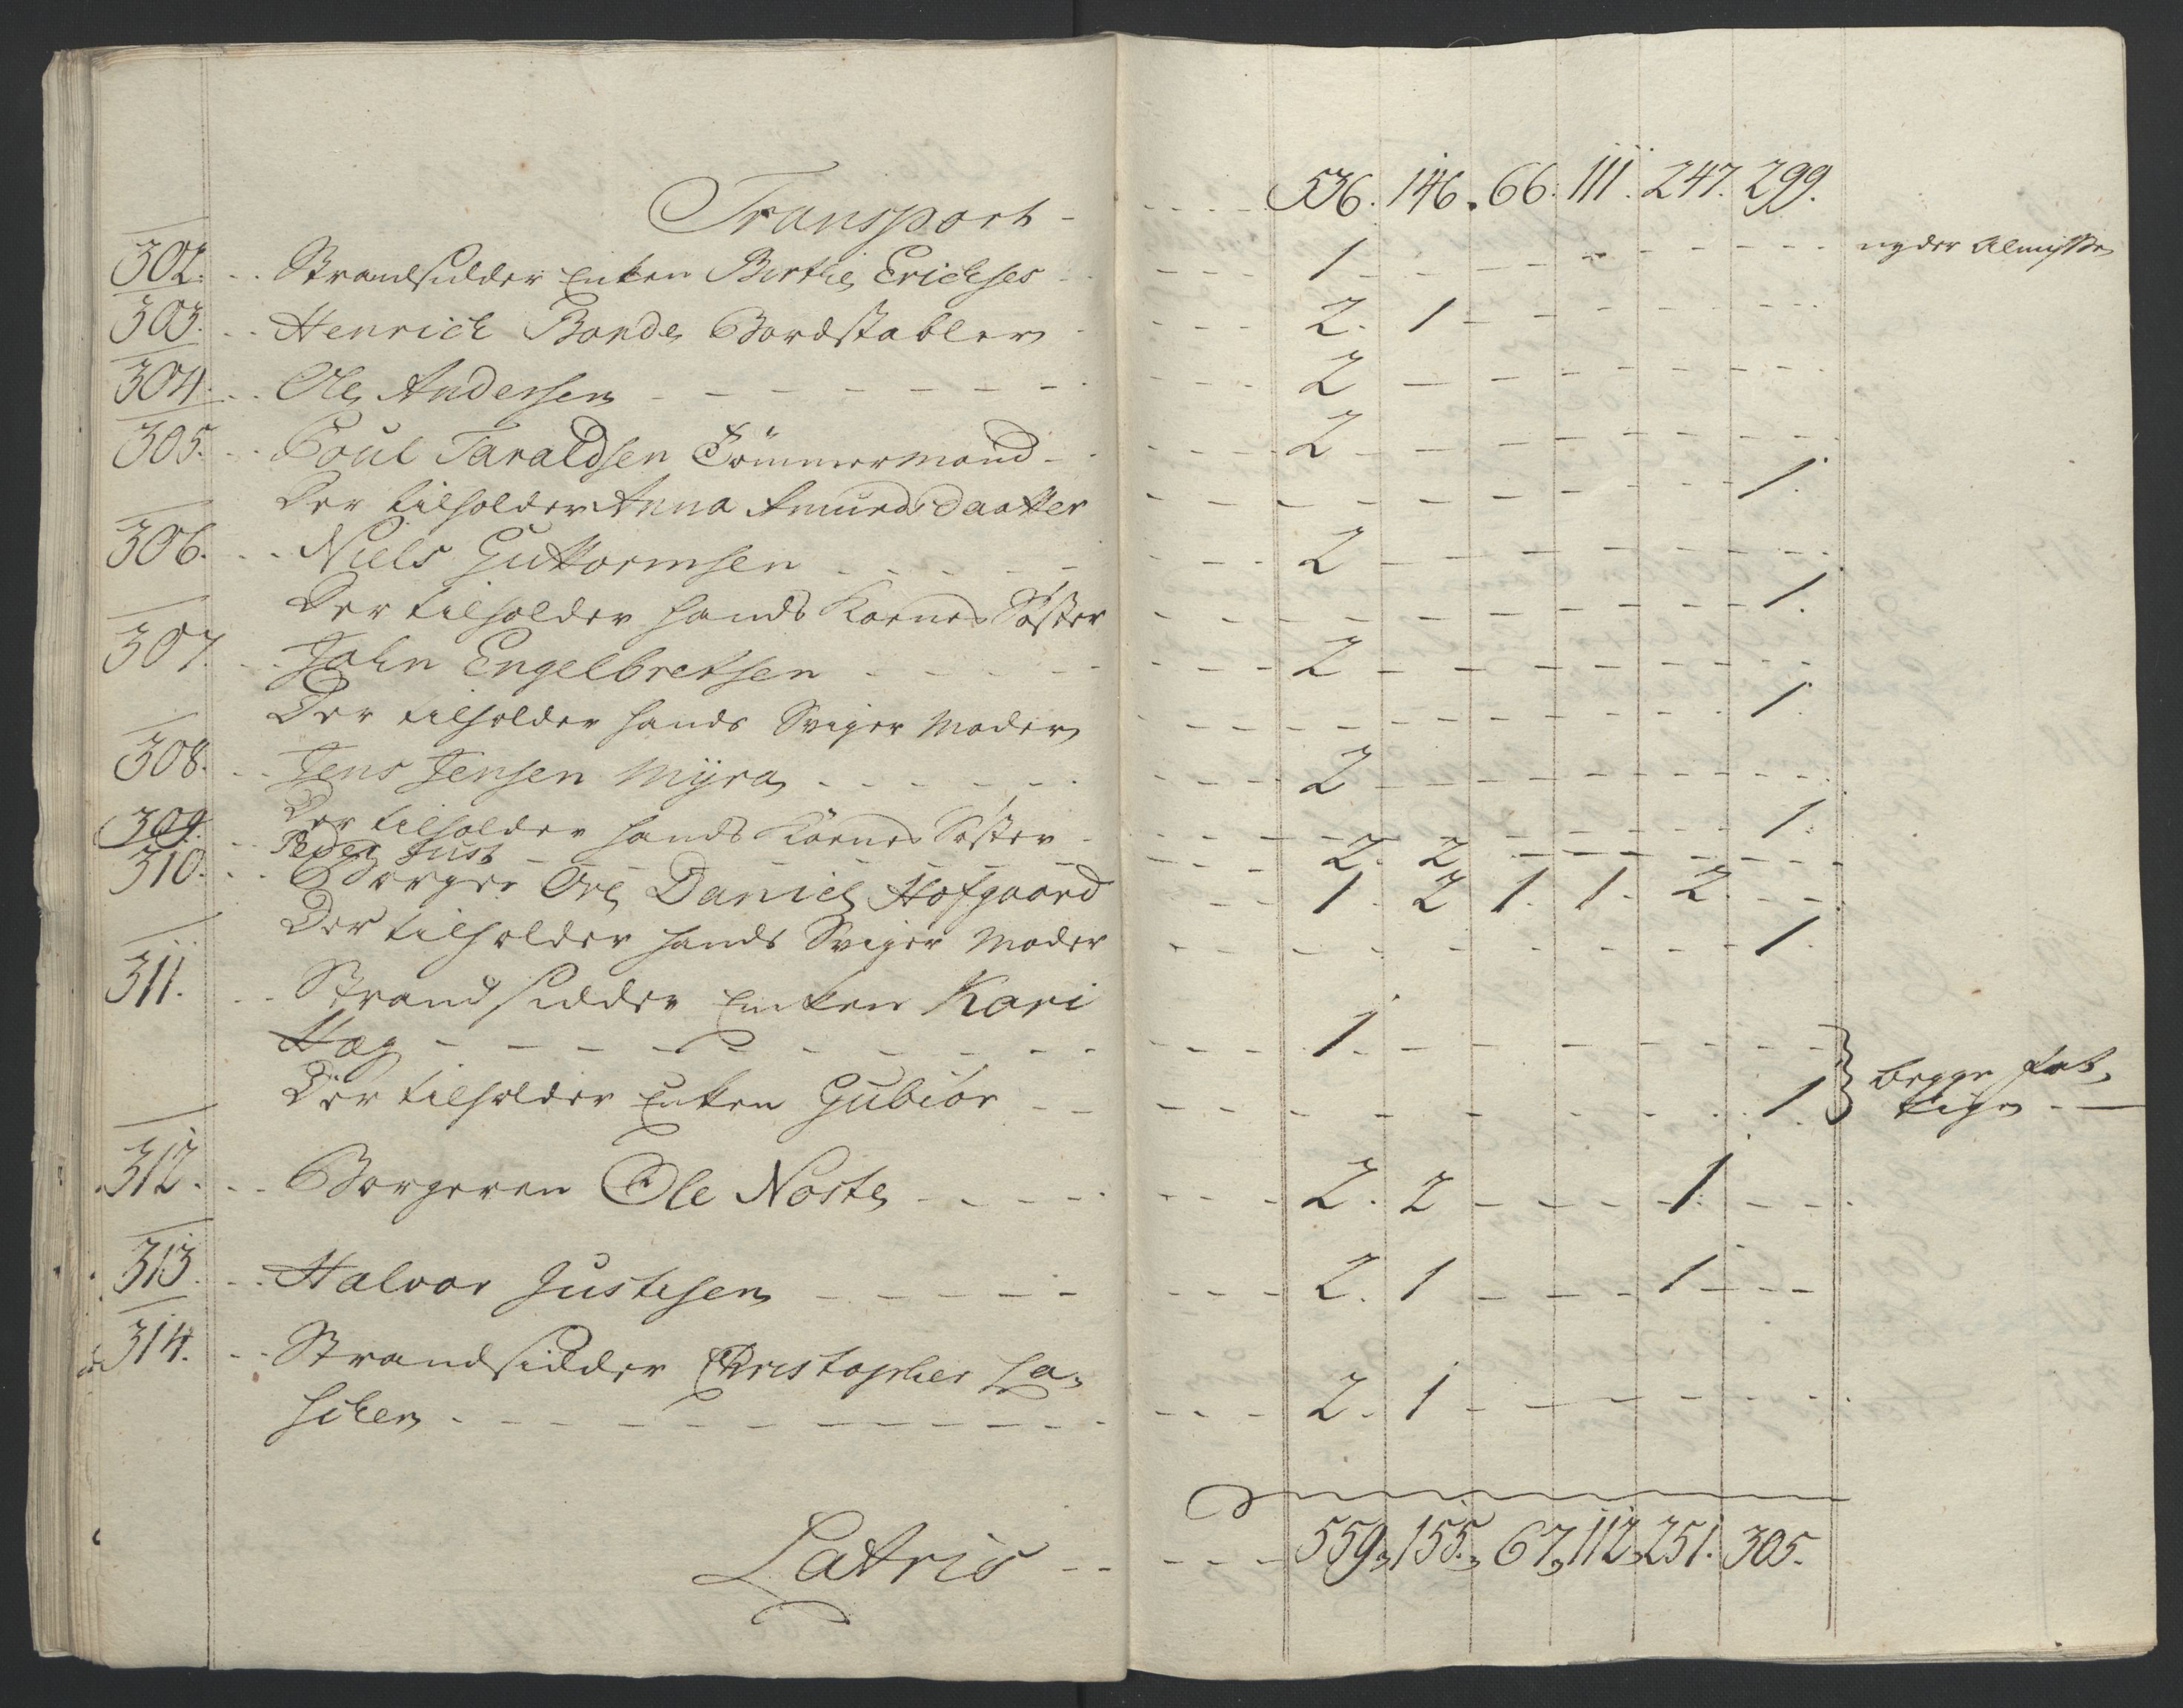 Transport - 536. 146. 66. 111. 247. 299.
302. Strandsidder Enken Berthe Erichses 1 nyder Almisse
303. Henrich Bonde Bordstabler 2. 1
304. Ole Andersen 2
305. Poul Taraldsen Tömmermand 2
Der tilholder Anna Amunds Daatter 1.
306. Niels Guttormsen 2
Der tilholder hands Koenes Söster 1.
307. John Engelbretsen 2
Der tilholder hands Sviger Moder 1.
308. Jens Jensen Myra 2
Der tilholder hands Koenes Söster 1.
309. Peder Just 2. 2
310. Borger Ole Daniel Hofgaard 1. 2 1. 1. 2
Der tilholder hands Sviger Moder 1.
311. Strandsidder Enken Kari
Hæg 1.
Der tilholder Enken Gubiör 1. begge fat-
tige
312. Borgeren Ole Noste 2. 2 1.
313. Halvor Justesen 2. 1 1
314. Strandsidder Christopher La-
sken 2. 1
Latris 559, 155, 67, 112, 251. 305.